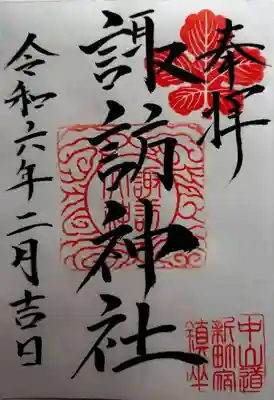 奉拝
諏訪神社
諏訪神社
令和六年二月吉日
中山道
新町宿
鎮坐